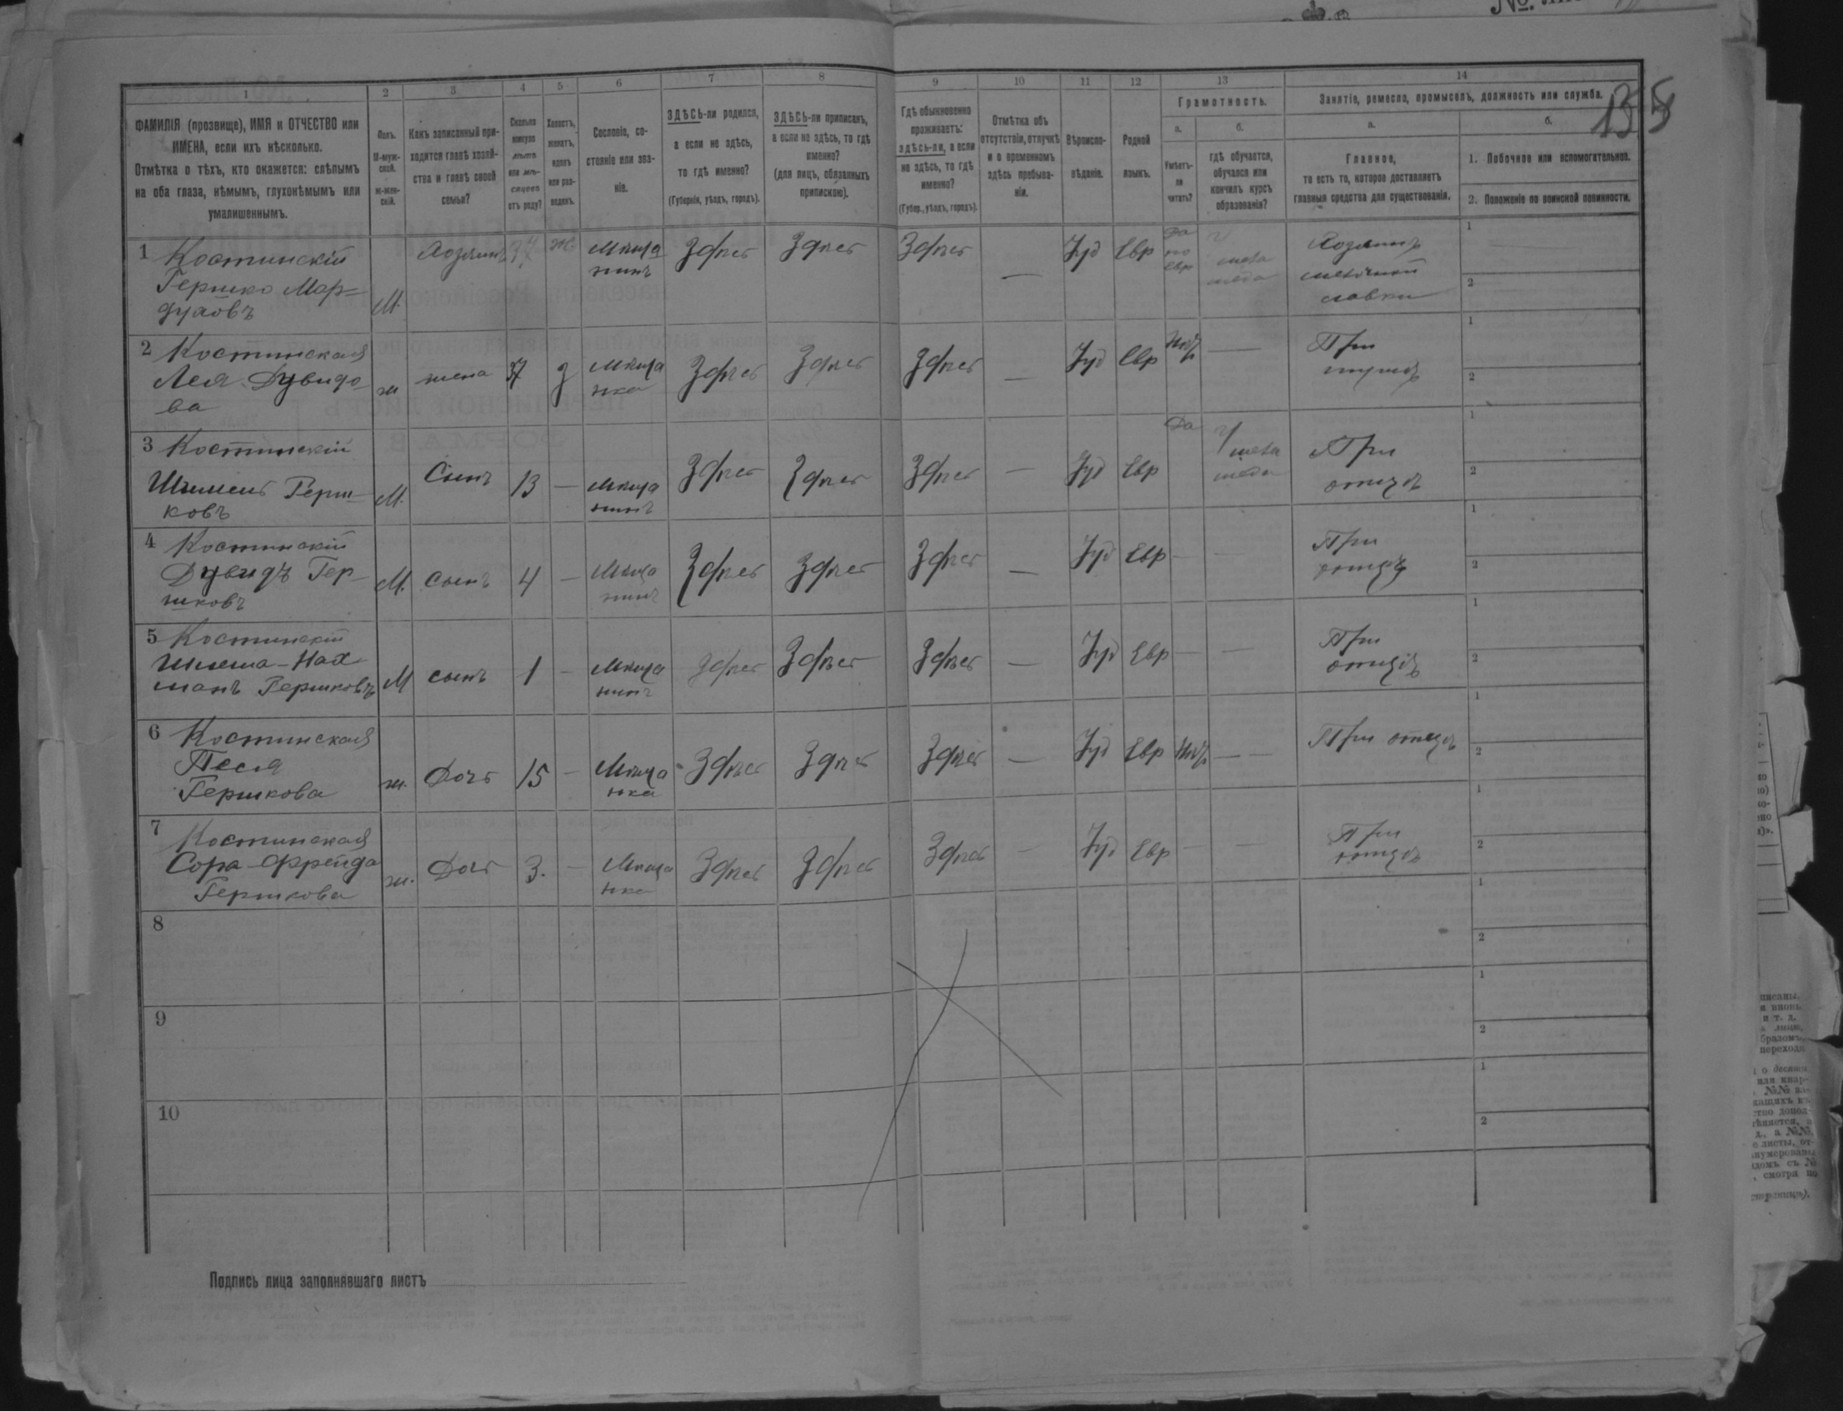 №.
135
1 2 3 4 5 6 7 8 9 10 11 12 13 14
ФАМИЛІЯ (прозвище), ИМЯ и ОТЧЕСТВО или
ИМЕНА, если ихъ нѣсколько.
Отмѣтка о тѣхъ, кто окажется: слѣпымъ
на оба глаза, нѣмымъ, глухонѣмымъ или
умалишеннымъ.
Полъ.
М-муж-
ской.
Ж-жен-
скій.
Какъ записанный при-
ходится главѣ хозяй-
ства и главѣ своей
семьи?
Сколько
минуло
лѣтъ
или мѣ-
сяцевъ
отъ роду?
Холостъ,
женатъ,
вдовъ
или раз-
веденъ.
Сословіе, со-
стояніе или зва-
ніе.
ЗДѢСЬ-ли родился,
а если не здѣсь,
то гдѣ именно?
(Губернія, уѣздъ, городъ).
ЗДѢСЬ-ли приписанъ,
а если не здѣсь, то гдѣ
именно?
(для лицъ, обязанныхъ
припискою).
Гдѣ обыкновенно
проживаетъ:
здѣсь-ли, а если
не здѣсь, то гдѣ
именно?
(Губер., уѣздъ, городъ).
Отмѣтка объ
отсутствіи, отлучкѣ
и о временномъ
здѣсь пребыва-
ніи.
Вѣроиспо-
вѣданіе.
Родной
языкъ.
Грамотность.
а.
Умѣетъ-
ли
читать?
б.
гдѣ обучается,
обучался или
кончилъ курсъ
образованія?
Занятіе, ремесло, промыселъ, должность или служба.
а.
Главное,
то есть то, которое доставляетъ
главныя средства для существованія.
б.
1. Побочное или вспомогательное.
2. Положеніе по воинской повинности.
1 Костинскій
Гершко Мор-
духовъ
М. Хозяинъ 37 ж Мѣща
нинъ Здѣсь Здѣсь Здѣсь — Іуд Евр
да
по
евр
Хозяинъ
мелочной
лавки
1
2
2 Костинская
Лея Дувидо
ва
ж жена 37 з Мѣща
нка Здѣсь Здѣсь Здѣсь — Іуд Евр —
При
мужѣ
1
2
3 Костинскій
Герш-
ковъ
М. Сынъ 13 — Мѣща
нинъ Здѣсь Здѣсь Здѣсь — Іуд Евр Да
При
отцѣ
1
2
4 Костинскій
Дувидъ Гер-
шковъ
М. сынъ 4 — Мѣща
нинъ Здѣсь Здѣсь Здѣсь — Іуд Евр — —
При
отцѣ
1
2
5 Костинскій
Шлема-Нах
манъ Гершковъ
М сынъ 1 — Мѣща
нинъ Здѣсь Здѣсь Здѣсь — Іуд Евр — —
При
отцѣ
1
2
6 Костинская
Песя
Гершкова
ж. Дочь 15 — Мѣща
нка Здѣсь Здѣсь Здѣсь — Іуд Евр —
При отцѣ
1
2
7 Костинская
Сора-Фрейда
Гершкова
ж. Дочь 3. — Мѣща
нка Здѣсь Здѣсь Здѣсь — Іуд Евр — —
При
отцѣ
1
2
8
1
2
9
1
2
10
1
2
Подпись лица заполнявшаго листъ